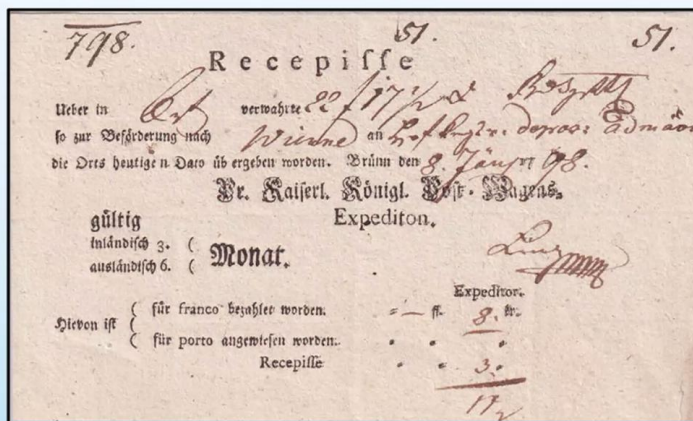 798. 51. 51.
Recepisse
Ueber in verwahrte 22 f 17½
so zur Beförderung nach Wienn an
die Orts heutigen Dato übergeben worden. Brünn den 8. 98.
Pr. Kaiserl. Königl. Post-Wagens-
gültig Expediton.
inländisch 3. (
Monat.
ausländisch 6. (
Expeditor.
( für franco bezahlet worden. - — fl. 8. kr.
Hievon ist (
( für porto angewiesen worden.
Recepisse 3.